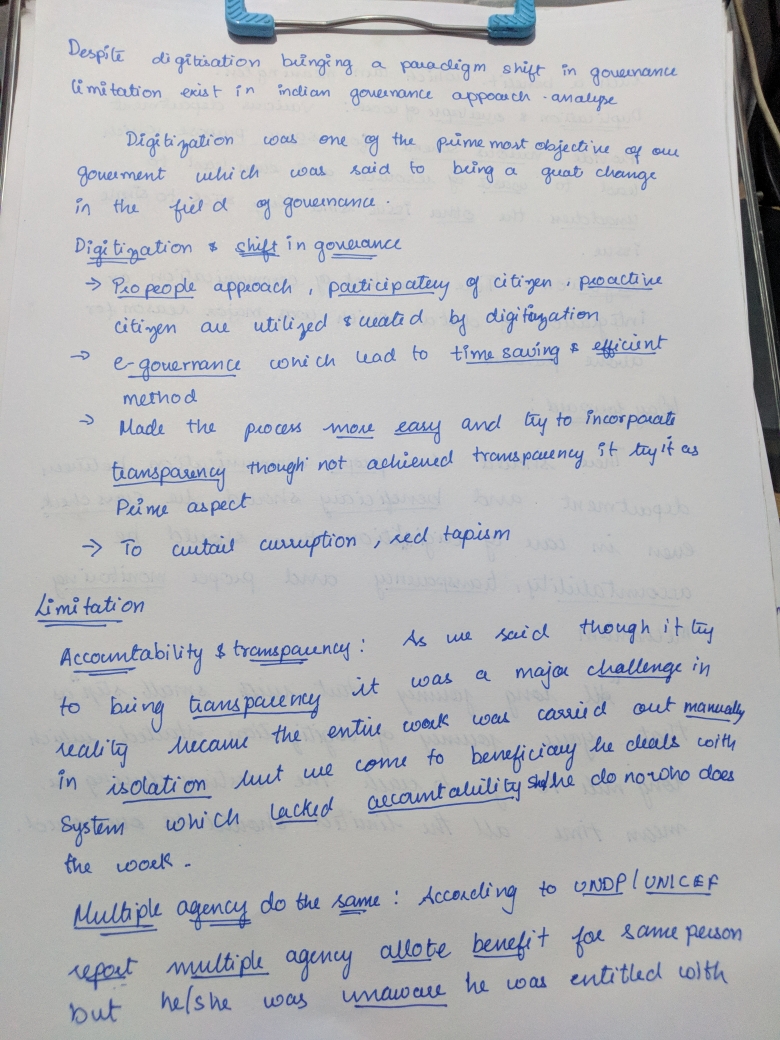 Despite digitisation bringing a paradigm shift in governance
limitation exist in indian governance approach. analyse
Digitization was one of the prime most objective of our
goverment which was said to being a great change
in the field of governance.
Digitization & shift in goverance
→ Pro people approach, participatery of citizen, proactive
citizen are utilized & created by digitization
→ e-goverrance which lead to time saving & efficient
method
→ Made the process more easy and try to incorporate
transparency though not achieved transparency it try it as
Prime aspect
→ To curtail curruption, red tapism
Limitation
Accountability & transparency: As we said though it try
to being transparency it was a major challenge in
reality became the entire work was carried out manually
in isolation but we come to beneficiary he deals with
System which lacked accountability he do now who does
the work.
Multiple agency do the same: According to UNDP/UNICEF
report multiple agency allote benefit for same person
but he/she was unaware he was entitled with